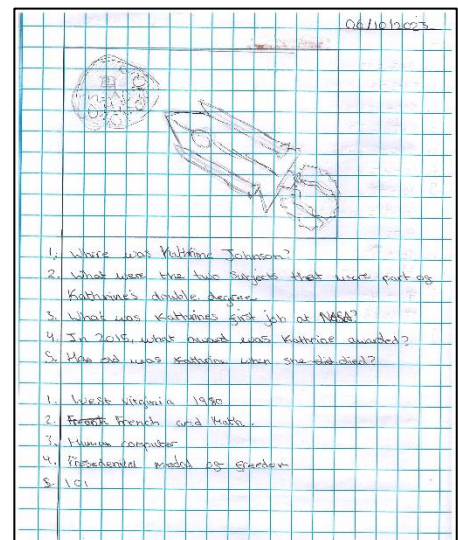 06/10/2023
1. Where was Kathrine Johnson?
2. What were the two subjects that were part of
Kathrine's double degree
3. What was Kathrines first job at NASA?
4. In 2015, what award was Kathrine awarded?
5. How old was Kathrine when she did died?
1. West virginia 1980
2. French and Math.
3. Human computer
4. Presedental medal of freedom
5. 101